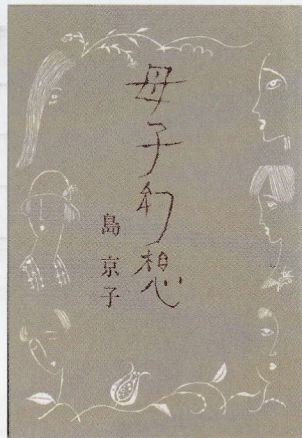 母子幻想
島京子